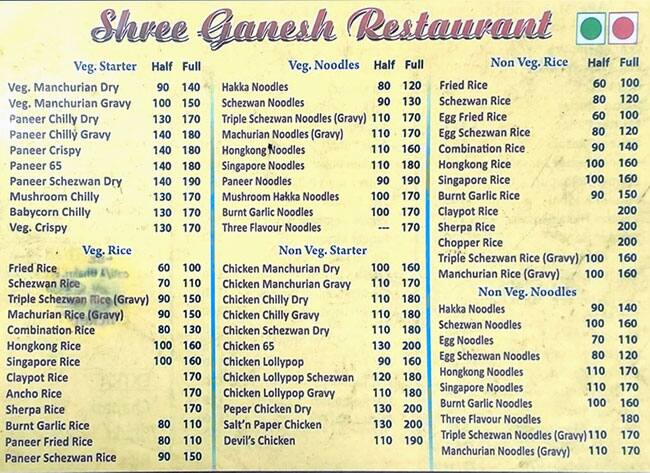 Shree Ganesh Restaurant
Veg. Starter Half Full
Veg. Manchurian Dry 90 140
Veg. Manchurian Gravy 100 150
Paneer Chilly Dry 130 170
Paneer Chilly Gravy 140 180
Paneer Crispy 140 180
Paneer 65 140 180
Paneer Schezwan Dry 140 190
Mushroom Chilly 130 170
Babycorn Chilly 130 170
Veg. Crispy 130 170
Veg. Rice
Fried Rice 60 100
Schezwan Rice 70 110
Triple Schezwan Rice (Gravy) 90 150
Machurian Rice (Gravy) 90 150
Combination Rice 80 130
Hongkong Rice 100 160
Singapore Rice 100 160
Claypot Rice 170
Ancho Rice 170
Sherpa Rice 170
Burnt Garlic Rice 80 110
Paneer Fried Rice 80 110
Paneer Schezwan Rice 90 150
Veg. Noodles Half Full
Hakka Noodles 80 120
Schezwan Noodles 90 130
Triple Schezwan Noodles (Gravy) 110 170
Machurian Noodles (Gravy) 110 170
Hongkong Noodles 110 160
Singapore Noodles 110 180
Paneer Noodles 90 190
Mushroom Hakka Noodles 100 170
Burnt Garlic Noodles 100 170
Three Flavour Noodles --- 170
Non Veg. Starter
Chicken Manchurian Dry 100 160
Chicken Manchurian Gravy 110 170
Chicken Chilly Dry 110 180
Chicken Chilly Gravy 110 180
Chicken Schezwan Dry 110 180
Chicken 65 130 200
Chicken Lollypop 90 160
Chicken Lollypop Schezwan 120 180
Chicken Lollypop Gravy 110 180
Peper Chicken Dry 130 200
Salt'n Paper Chicken 130 200
Devil's Chicken 110 190
Non Veg. Rice Half Full
Fried Rice 60 100
Schezwan Rice 80 120
Egg Fried Rice 60 100
Egg Schezwan Rice 80 120
Combination Rice 90 140
Hongkong Rice 100 160
Singapore Rice 100 160
Burnt Garlic Rice 90 150
Claypot Rice 200
Sherpa Rice 200
Chopper Rice 200
Triple Schezwan Rice (Gravy) 100 160
Manchurian Rice (Gravy) 100 160
Non Veg. Noodles
Hakka Noodles 90 140
Schezwan Noodles 100 160
Egg Noodles 70 110
Egg Schezwan Noodles 80 120
Hongkong Noodles 110 170
Singapore Noodles 110 170
Burnt Garlic Noodles 100 160
Three Flavour Noodles 180
Triple Schezwan Noodles (Gravy) 110 170
Manchurian Noodles (Gravy) 110 170